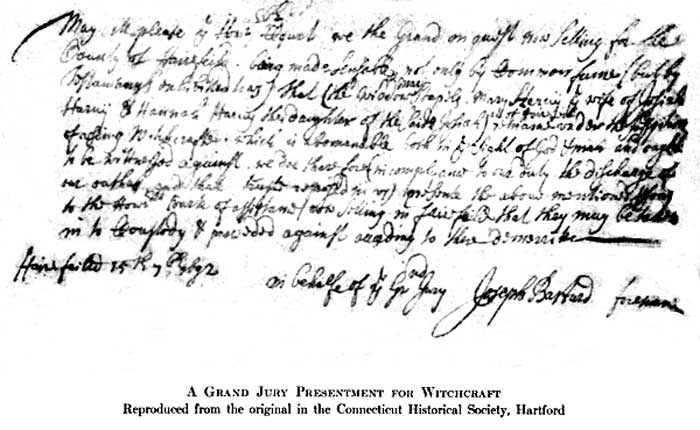 May it please yr Honr Court we the Grand on quest now setting for the
County of Fairefeild being made sensable not only by Common fame (but by
Testamonys delivered to us) that (the widdow Mary Staple Mary Harvy ye wife of Josiah
Harvy & Hannah Harvy the daughter of the saide Josiah) all of remaine under the susspition
of useing Witchcraft which is abomanable both in ye sight of God & man and ought
to be witnessed against. we doe therefore in complyance to our duty the discharge of
our oathes and that trust reposed in us) presente the above mentioned
to the Honrbl Court of assistane now setting in Fairefeild that they may be taken
in to Coustody & proceeded against according to there demerrits
Fairefeild 15th 7br 1692
in behalfe of ye Grnd Jury Joseph Bastard foreman
A GRAND JURY PRESENTMENT FOR WITCHCRAFT
Reproduced from the original in the Connecticut Historical Society, Hartford